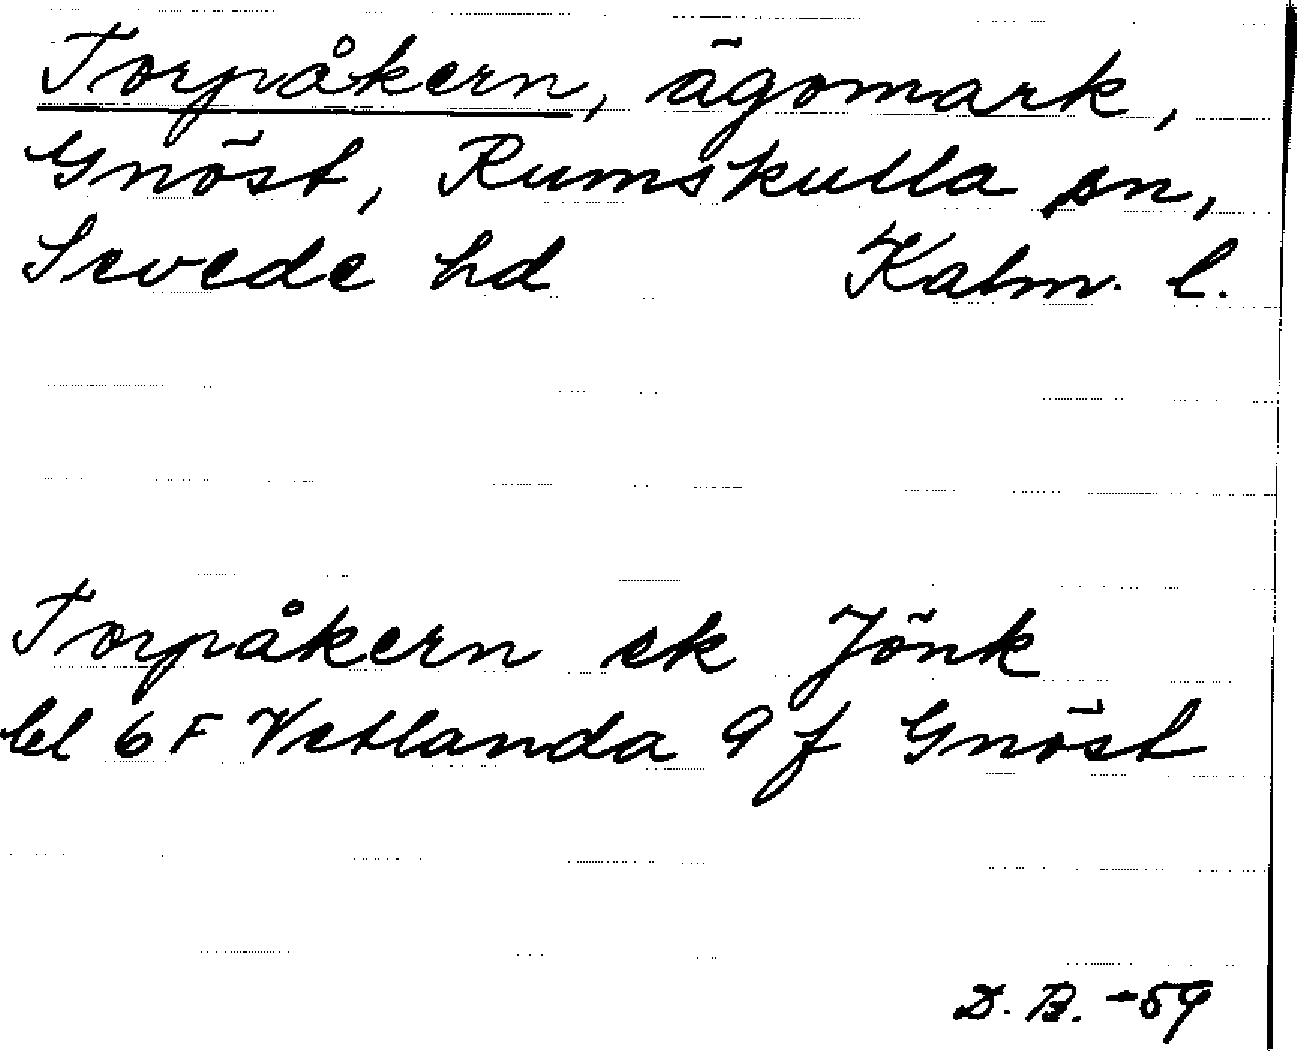 Torpåkern, ägomark,
Gnöst, Rumskulla sn,
Sevede hd Kalm. l.
Torpåkern ek Jönk
bl 6 F Vetlanda 9 f Gnöst
D. B. -59